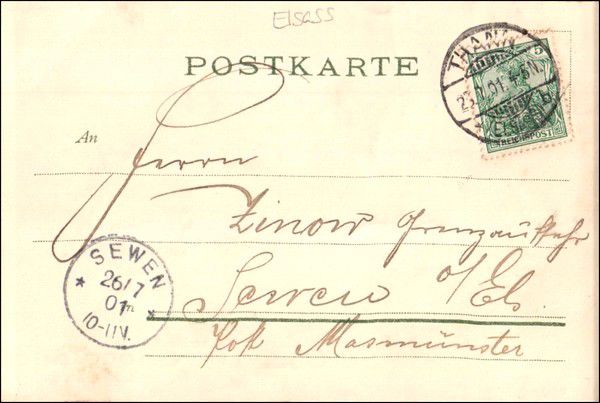 Elsass
POSTKARTE
THANN
5
(ELSASS)
REICHSPOST
An
Herrn
Zinow Grenzaufseher
Sewen o/Els.
Post Masmünster
SEWEN
26/7
01
10-11V.